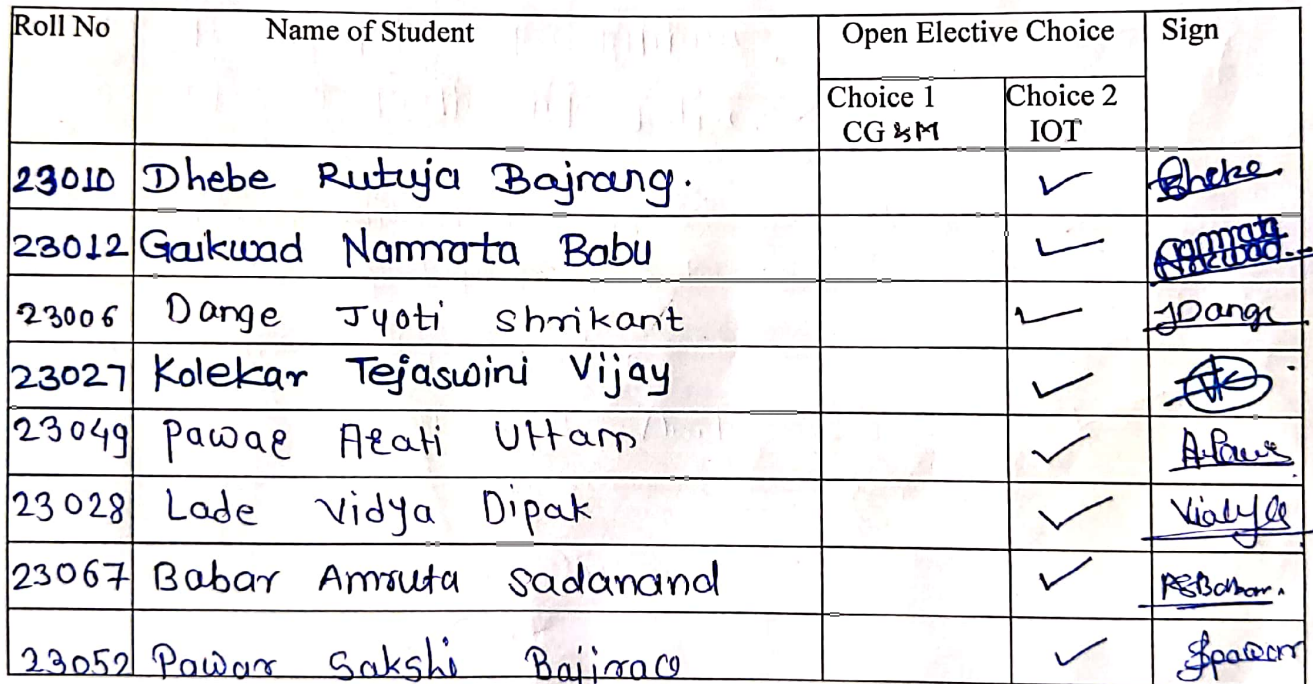 Roll No Name of Student Open Elective Choice Sign
Choice 1 Choice 2
CG & M IOT
23010 Dhebe Rutuja Bajrang. ✓ Dhebe
23012 Gaikwad Namrata Babu ✓
23006 Dange Jyoti Shrikant ✓ JDange
23027 Kolekar Tejaswini Vijay ✓
23049 Pawar Arati Uttam ✓ A.Pawar
23028 Lade Vidya Dipak ✓ Vidya
23067 Babar Amruta Sadanand ✓ ASBabar.
23052 Pawar Sakshi Bajirao ✓ Spawar